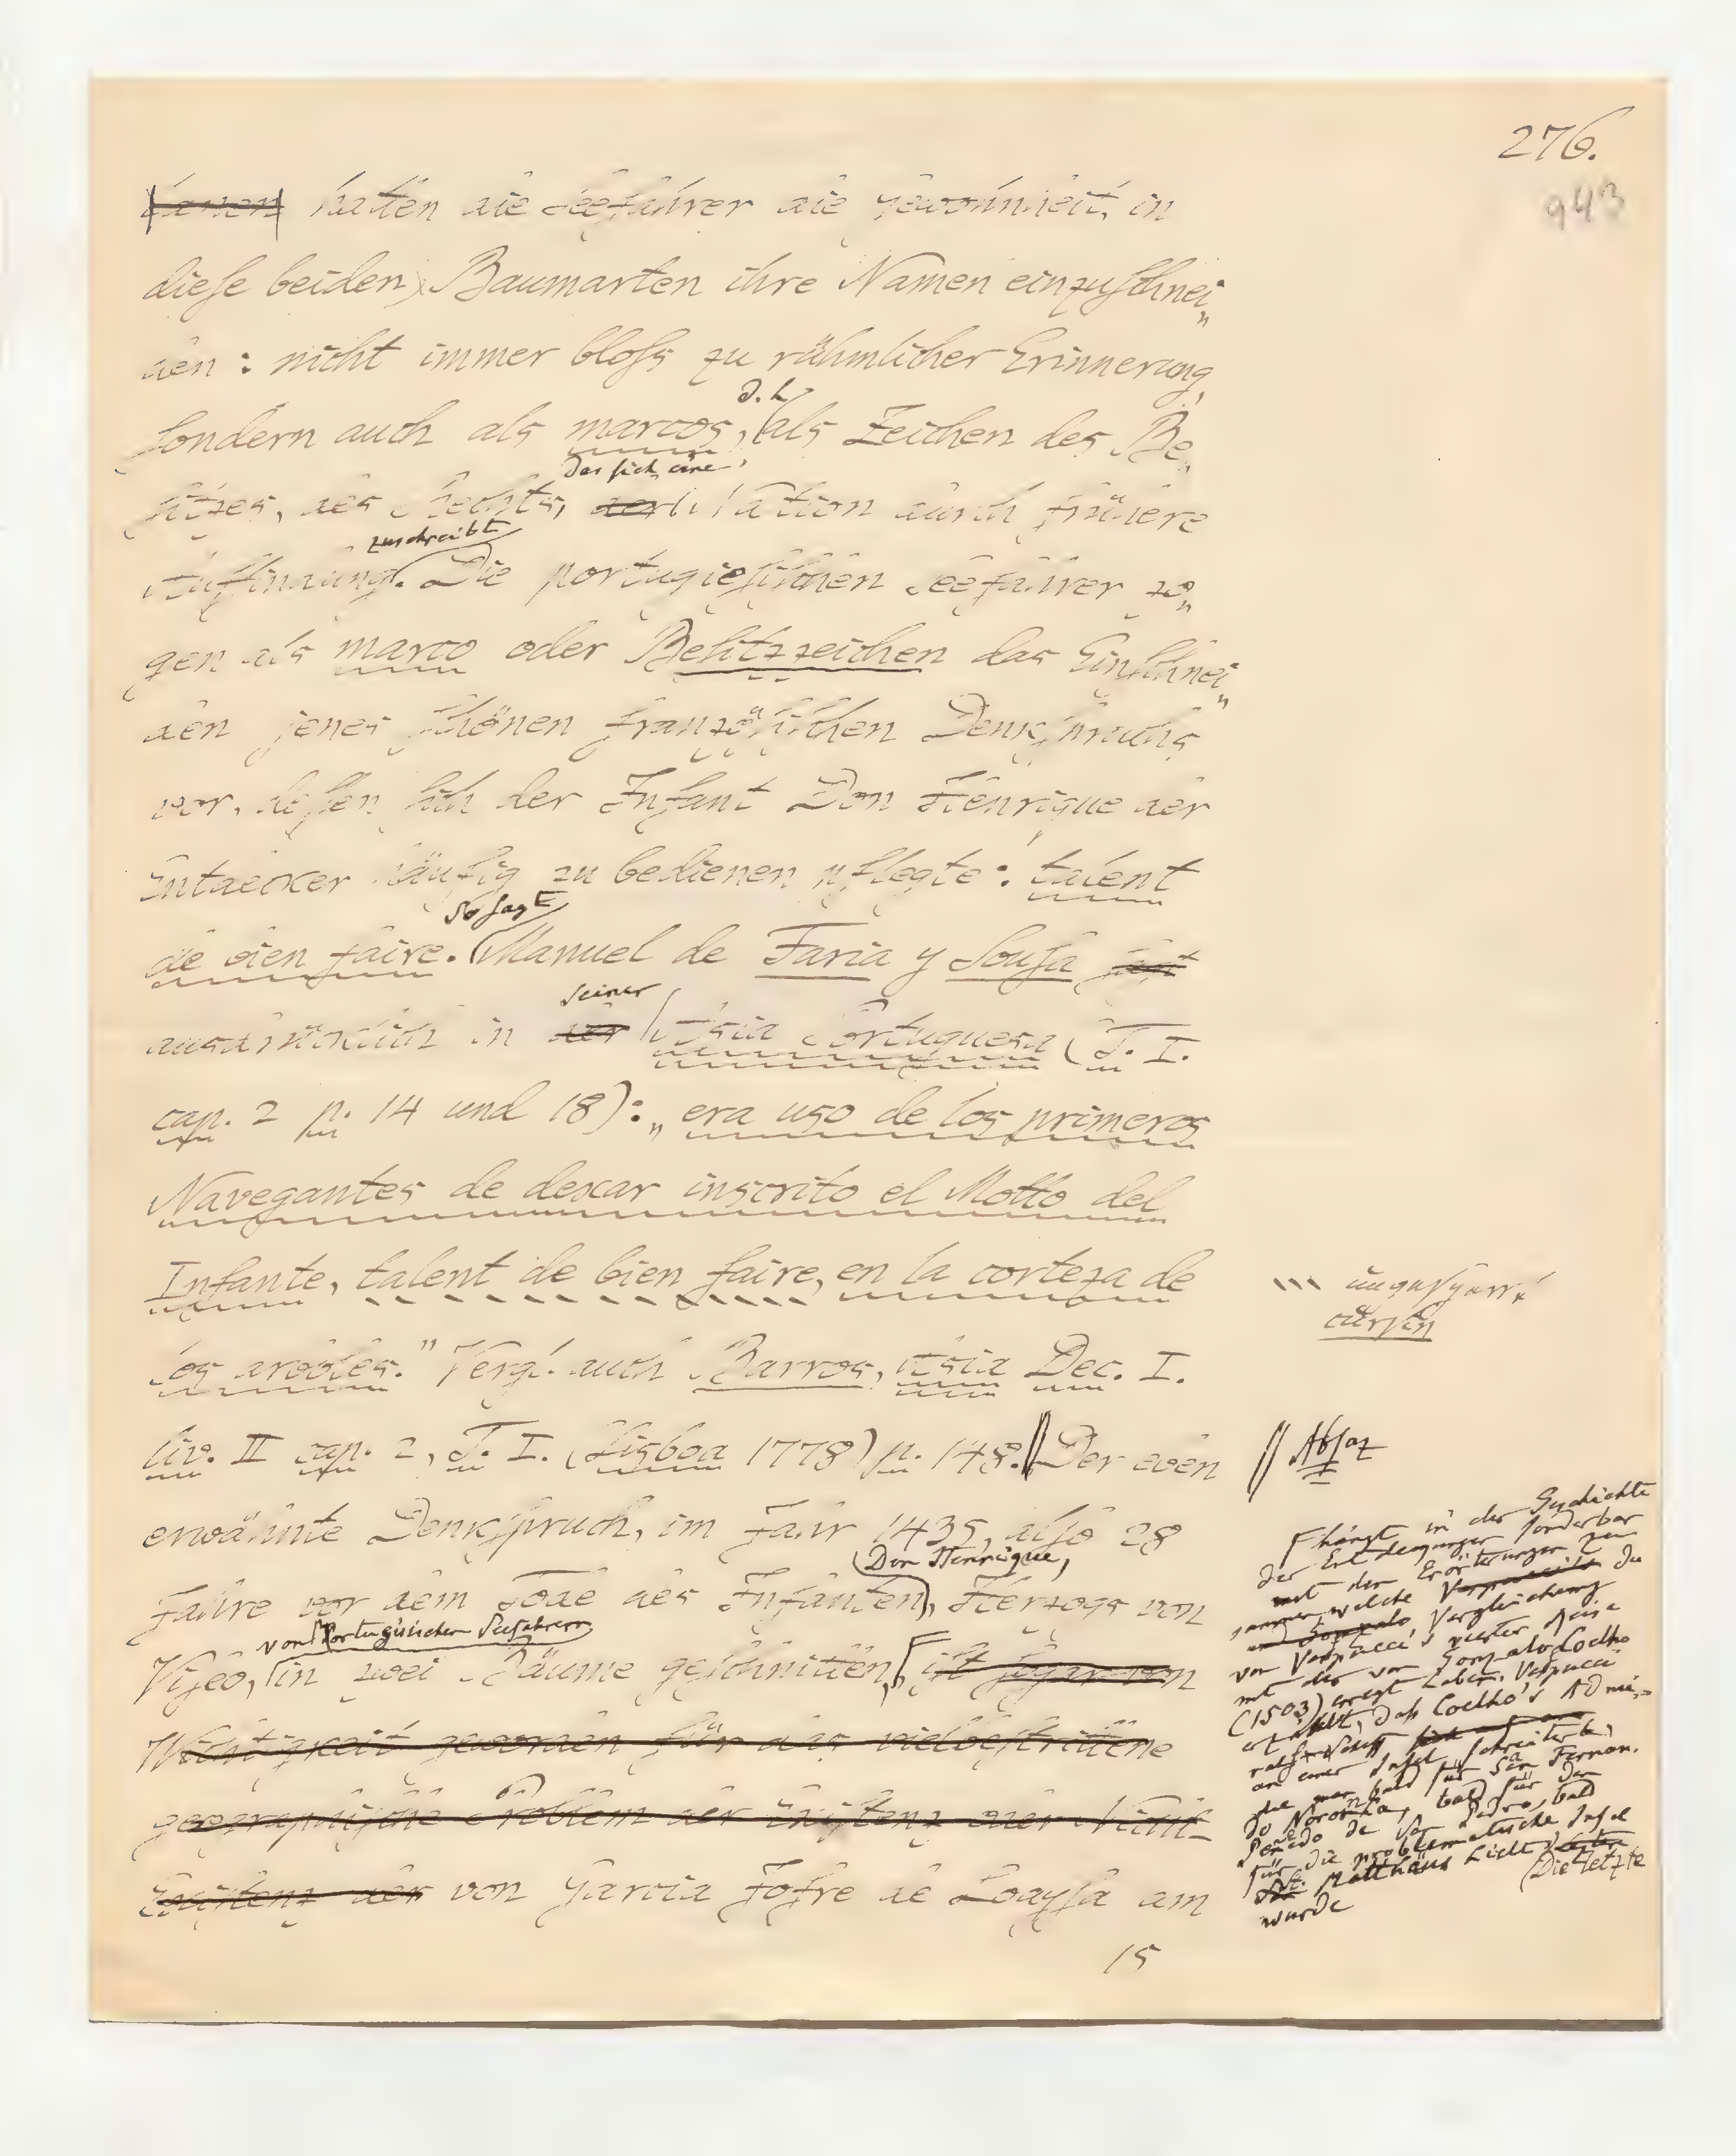 276.
943
hatten die Seefahrer die Gewohnheit, in
diese beiden Baumarten ihre Namen einzuschnei„
den: nicht immer bloss zu rühmlicher Erinnerung,
d. h.
sondern auch als marcos, (als Zeichen des Be„
das sich eine
sitzes, des Rechts, der Nation durch frühere
zuschreibt
Auffindung. Die portugiesischen Seefahrer zo„
gen als marco oder Besitzzeichen das Einschnei„
den jenes schönen französischen Denkspruchs
vor, dessen sich der Infant Don Henrique der
Entdecker häufig zu bedienen pflegte: talent
so sagt
de bien faire. (Manuel de Faria y Sousa sagt
seiner
ausdrücklich in der Asia Portuguesa (T. I.
cap. 2 p. 14 und 18): „era uso de los primeros
Navegantes de dexar inscrito el Motto del
Infante, talent de bien faire, en la corteza de
los arboles." Vergl. auch Barros, Asia Dec. I.
liv. II cap. 2, T. I. (Lisboa 1778) p. 148. || Der eben
erwähnte Denkspruch, im Jahr 1435, also 28
Don Henrique,
Jahre vor dem Tode des Infanten, Herzogs von
von Portugisischen Seefahrern
Viseo, in zwei Bäume geschnitten, ist sogar von
Wichtigkeit geworden für das vielbestrittene
geographische Problem der Existenz oder Nicht-
Existenz der von Garcia Jofre de Loaysa am
15
cursiv
|| Absaz
hängt in der Geschichte
der Entdeckungen sonderbar
mit den Erörterungen zu„
sammen, welche die
Vergleichung
von Vespucci's vierter Reise
mit der von Gonzalo Coelho
(1503) erregt haben. Vespucci
erzählt, daß Coelho's Admi-
ralschiff
an einer Insel scheiterte,
die man bald für San Fernan.
do Noronha, bald für den
Penedo de San Pedro, bald
für die problematische Insel
St. Matthäus hielt. (Die letzte
wurde